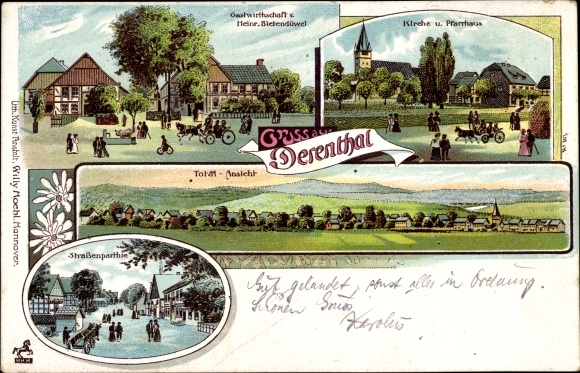 Gastwirthschaft v.
Heinr. Bietendüwel
Kirche u. Pfarrhaus
Gruss aus
Derenthal
Total - Ansicht
Straßenparthie
Lith. Kunst Anstalt. Willy Hoehl. Hannover.
Gut gelandet, sonst alles in Ordnung.
Schönen Gruss
Karolus